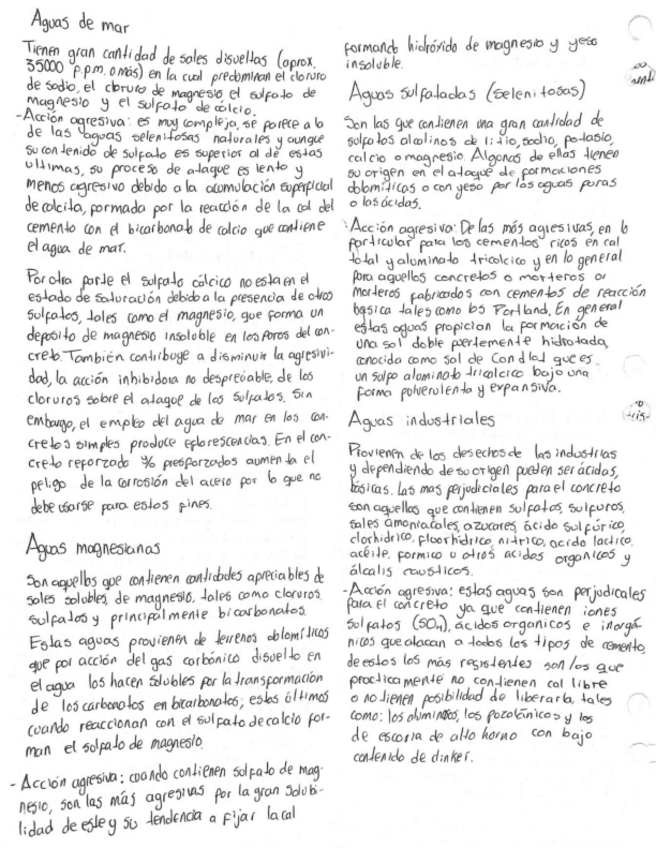 Aguas de mar
Tienen gran cantidad de sales disueltas (aprox.
35000 p.p.m. o más) en la cual predominan el cloruro
de sodio, el cloruro de magnesio el sulfato de
magnesio y el sulfato de calcio.
- Acción agresiva: es muy compleja, se parece a la
de las aguas selenitosas naturales y aunque
su contenido de sulfato es superior al de estas
ultimas, su proceso de ataque es lento y
menos agresivo debido a la acumulación superficial
de calcita, formada por la reacción de la cal del
cemento con el bicarbonato de calcio que contiene
el agua de mar.
Por otra parte el sulfato cálcico no esta en el
estado de saturación debido a la presencia de otros
sulfatos, tales como el magnesio, que forma un
deposito de magnesio insoluble en los poros del con-
creto. También contribuye a disminuir la agresivi-
dad, la acción inhibidora no despreciable, de los
cloruros sobre el ataque de los sulfatos. Sin
embargo, el empleo del agua de mar en los con-
cretos simples produce eflorescencias. En el con-
creto reforzado y/o presforzados aumenta el
peligo de la corrosión del acero por lo que no
debe usarse para estos fines.
Aguas magnesianas
Son aquellas que contienen cantidades apreciables de
sales solubles, de magnesio, tales como cloruros
sulfatos y principalmente bicarbonatos.
Estas aguas provienen de terrenos dolomíticos
que por acción del gas carbónico disuelto en
el agua los hacen solubles por la transformación
de los carbonatos en bicarbonatos; estos últimos
cuando reaccionan con el sulfato de calcio for-
man el sulfato de magnesio.
- Acción agresiva: cuando contienen sulfato de mag-
nesio, son las más agresivas por la gran solubi-
lidad de este y su tendencia a fijar la cal
formando hidróxido de magnesio y yeso
insoluble.
Aguas sulfatadas (selenitosas)
Son las que contienen una gran cantidad de
sulfatos alcalinos de litio, sodio, potasio,
calcio o magnesio Algunas de ellas tienen
su origen en el ataque de formaciones
dolomíticas o con yeso por las aguas puras
o las ácidas.
- Acción agresiva: De las más agresivas, en lo
particular para los cementos ricos en cal
total y aluminato tricalcico y en lo general
para aquellos concretos o morteros o
morteros fabricados con cementos de reacción
básica tales como los Portland. En general
estas aguas propician la formación de
una sal doble fertemente hidratada,
conocida como sal de Candlot que es
un sulfo aluminato tricalcico bajo una
forma pulverulenta y expansiva.
Aguas industriales
Provienen de los desechos de las industrias
y dependiendo de su origen pueden ser ácidas,
básicas. Las mas perjudiciales para el concreto
son aquellas que contienen sulfatos, sulfuros,
sales amoniacales, azucares, ácido sulfúrico,
clorhidrico, fluorhidrico, nitrico, acido lactico,
aceite, formico u otros acidos organicos y
álcalis causticos.
- Acción agresiva: estas aguas son perjudicales
para el concreto ya que contienen iones
sulfatos (SO4), ácidos organicos e inorgá-
nicos que atacan a todos los tipos de cemento,
de estos los más resistentes son los que
practicamente no contienen cal libre
o no tienen posibilidad de liberarla, tales
como: los aluminosos, los pozolánicos y los
de escoria de alto horno con bajo
contenido de clinker.